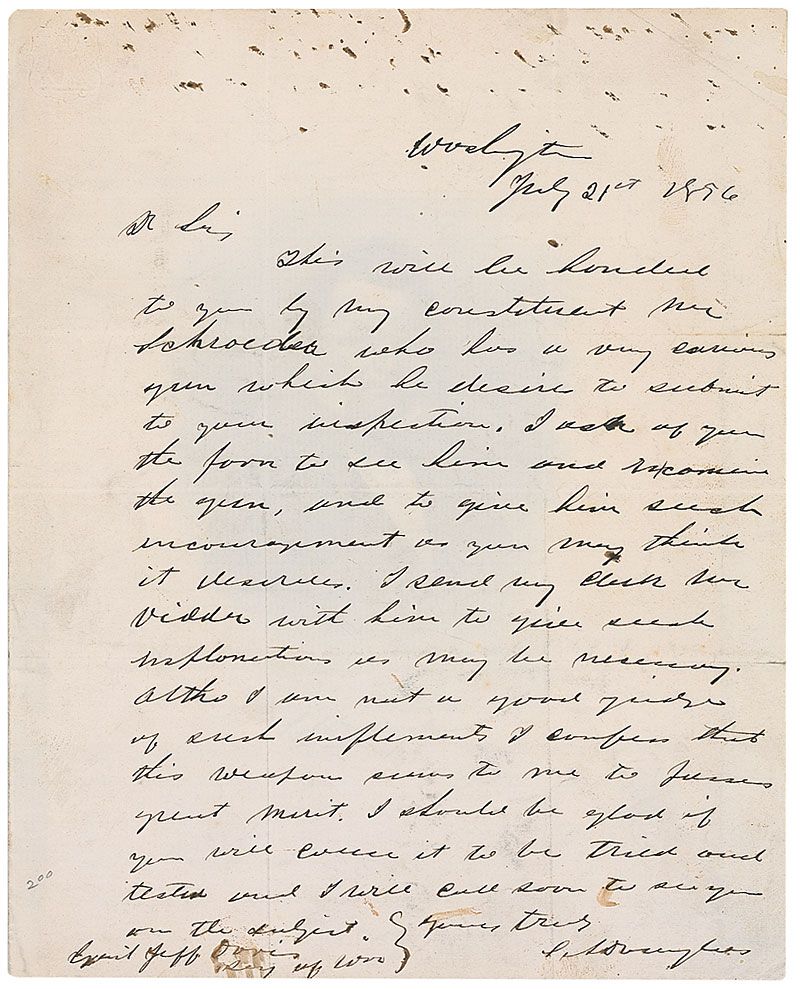 Washington
July 21st 1856
Dr Sir
This will be handed
to you by my constituent Mr
Schroeder who has a very curious
gun which he desires to submit
to your inspection. I ask of you
the favor to see him and examine
the gun, and to give him such
encouragement as you may think
it deserves. I send my clerk Mr
with him to give such
explanations as may be necessary.
Altho I am not a good judge
of such implements I confess that
this weapon seems to me to possess
great merit. I should be glad if
you will cause it to be tried and
tested and I will call soon to see you
on the subject. Yours truly
Jeff Davis S A Douglas
Secy of War
200